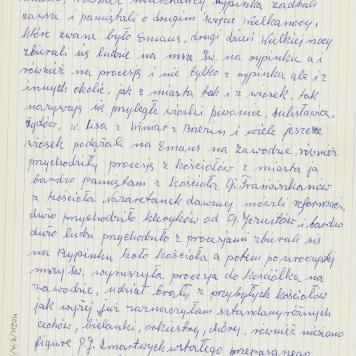 zawsze i pamiętali o drugim święcie Wielkanocy,
które zwane było Emaus, drugi dzień Wielkiej nocy
zbierali się ludzie na mszę św. na rypinku a i
również na procesję i nie tylko z rypinka ale i z
innych okolic, jak z miasta tak i z wiosek, tak
nazywają się przyległe wioski piwonice, sulisławice,
Lisa i wiele jeszcze
wiosek podążali na Emaus na Zawodzie, również
przychodziły procesje z kościołów z miasta ja
bardzo pamiętam z kościoła Oj. Franciszkanów
z kościoła nazaretanek dawniej mówili reformacja,
dużo przychodziło kleryków od Oj. Jezuitów i bardzo
dużo ludzi przychodziło z procesjami zbierali się
na Rypinku koło kościoła a potem po uroczystej
mszy św. wyruszyła procesja do kościółka na
zawodzie, udział brały z przybyłych kościołów
jak wyżej już zaznaczyłam sztandary różnych
cechów, bielanki, orkiestry, chóry, również niesiono
figurę P.J. Zmartwychwstałego